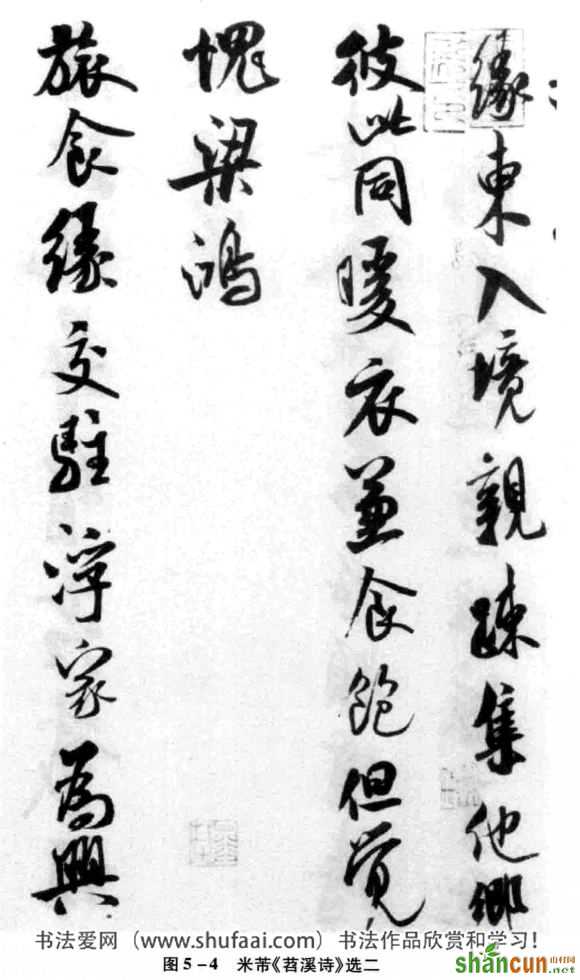 缘東入境親疎集他鄉
彼此同暖衣兼食飽但覺
愧梁鴻
旅食緣交駐浮家為興
书法爱网（www.shufaai.com）书法作品欣赏和学习！
图 5-4 米芾《苕溪诗》选二
山村网
shancun.net